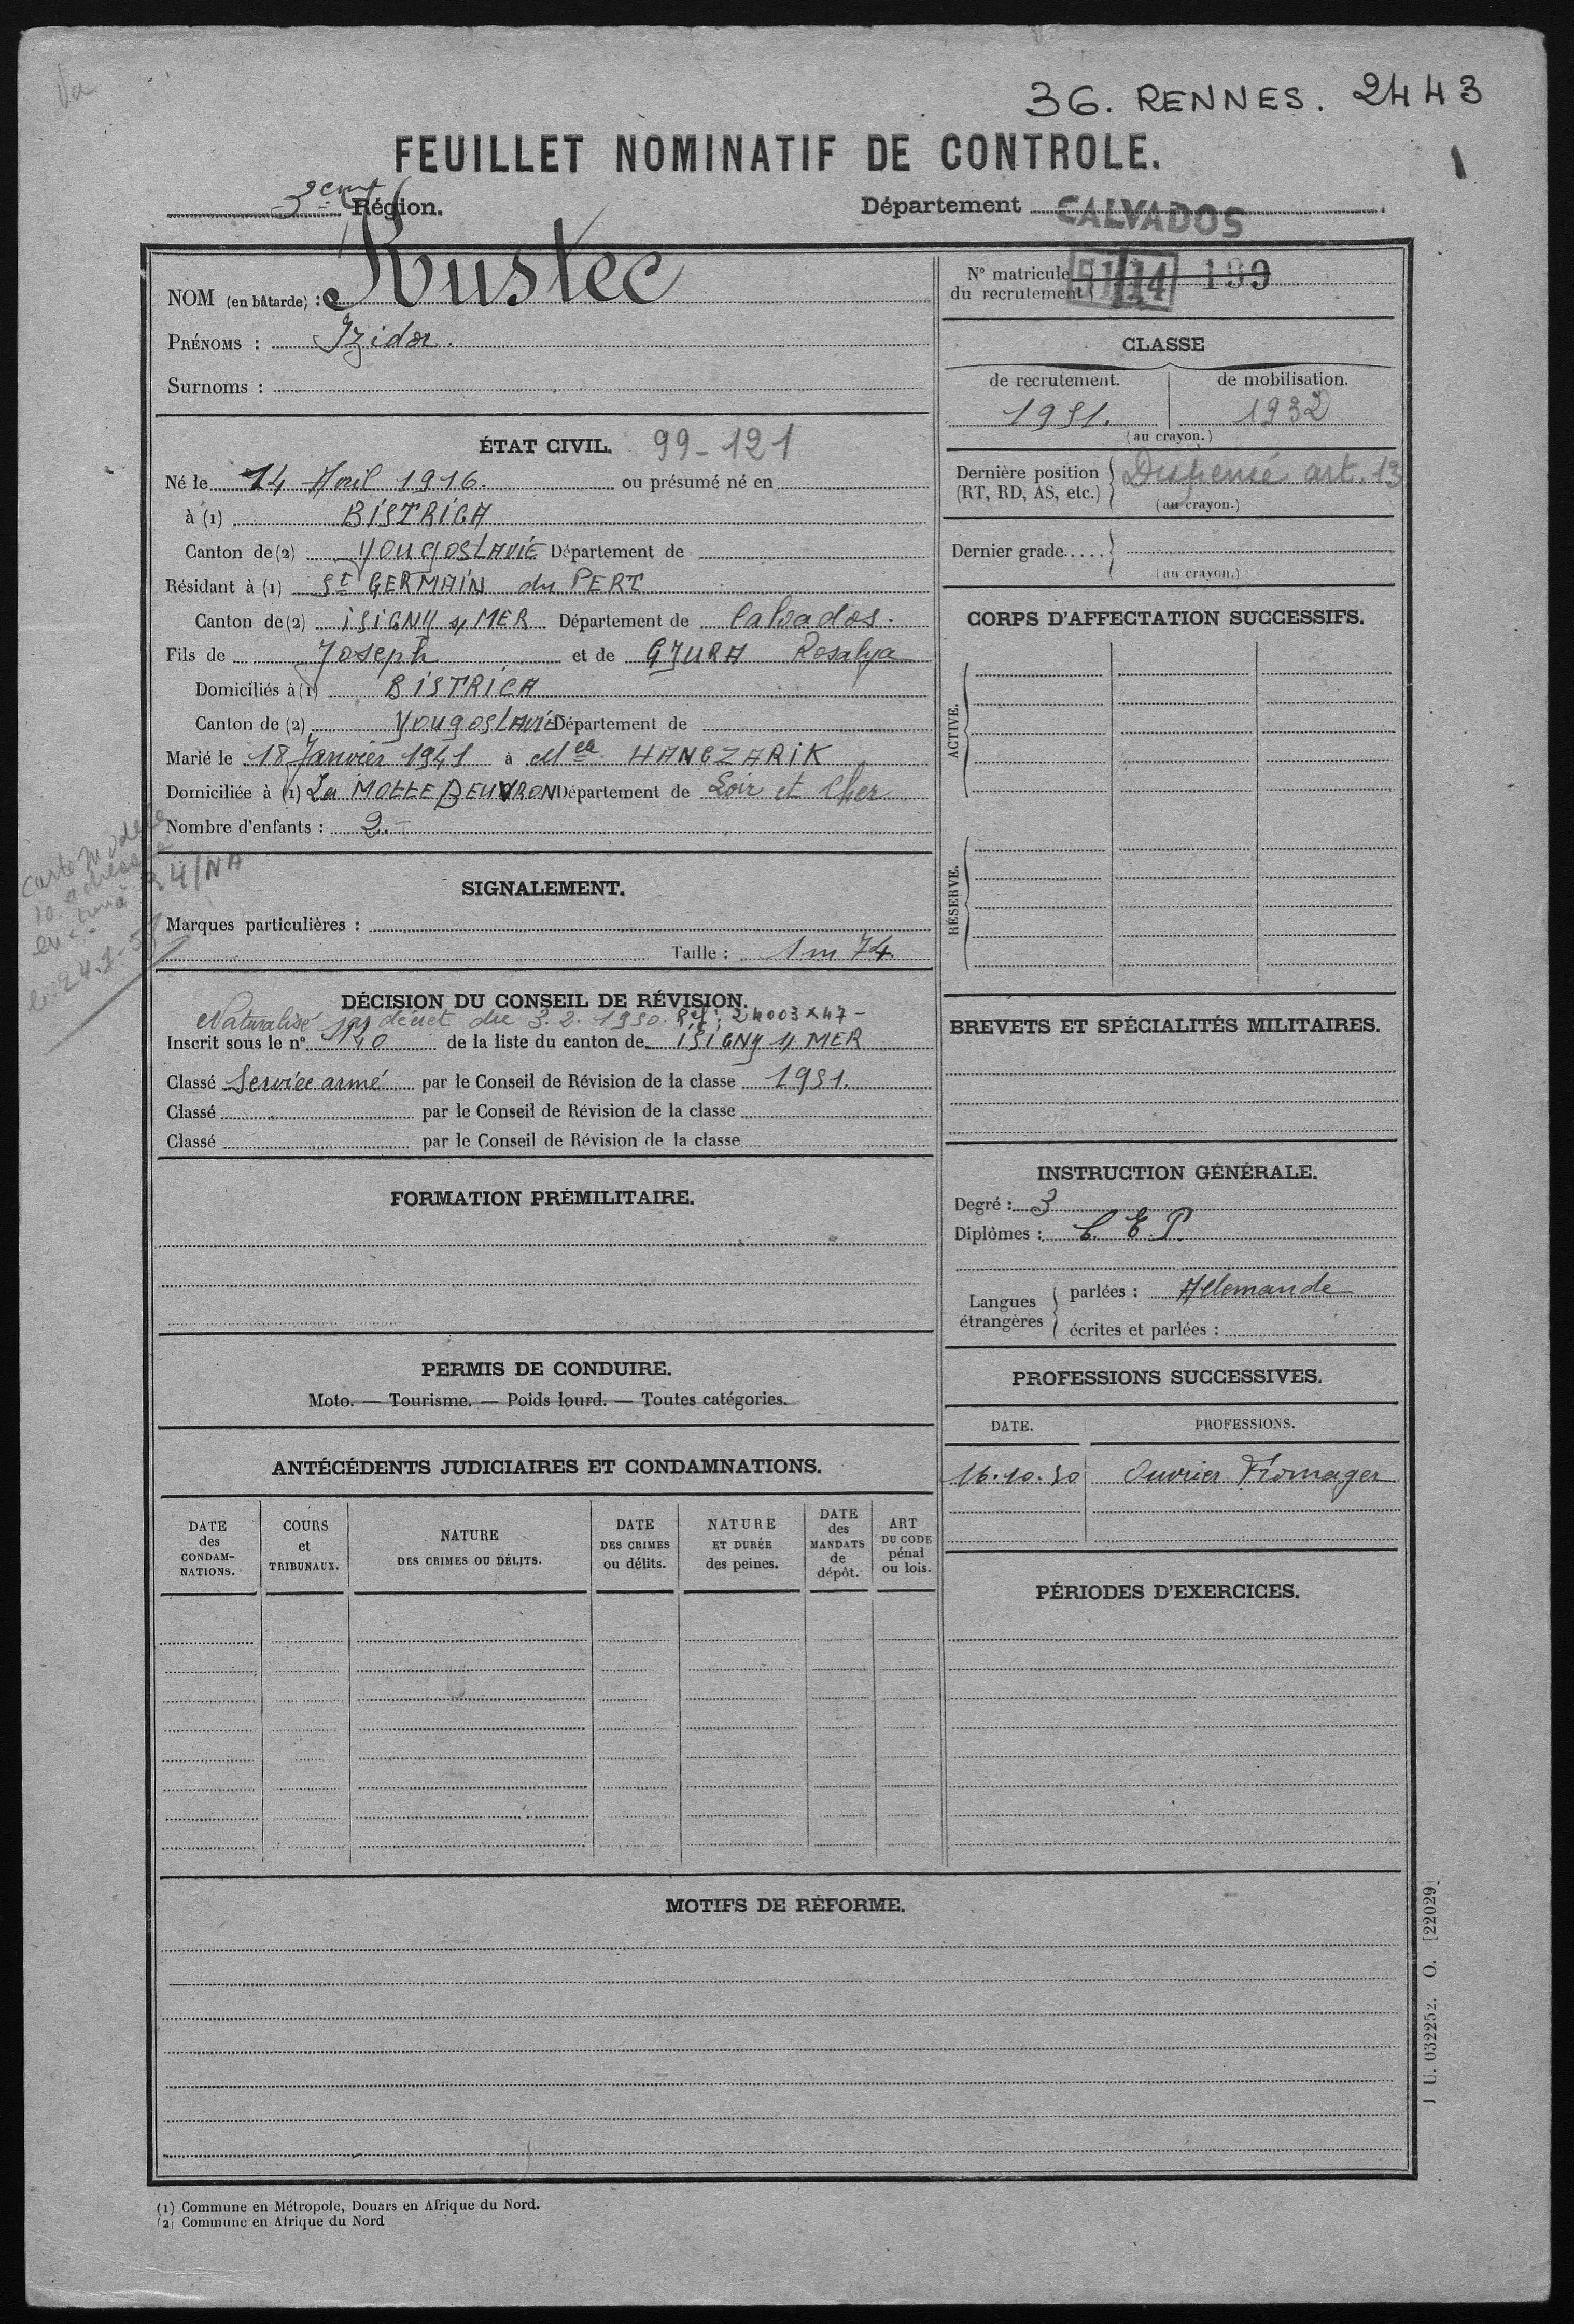 36. RENNES. 2443
FEUILLET NOMINATIF DE CONTROLE.
1
3eme Région.
Département CALVADOS
NOM (en bâtarde) : Kustec
PRÉNOMS : Izidor.
Surnoms :
ÉTAT CIVIL. 99-121
Né le 14 Avril 1916. ou présumé né en
à (1) BISTRICA
Canton de (2) YOUGOSLAVIE Département de
Résidant à (1) St GERMAIN du PERT
Canton de (2) ISIGNY s/ MER Département de Calvados.
Fils de Joseph et de GJURA Rosalya
Domiciliés à (1) BISTRICA
Canton de (2) YougosLAVIE Département de
Marié le 18 Janvier 1941 à Melle HANCZARIK
Domiciliée à (1) La MOTTE BEUVRON Département de Loir et Cher
Nombre d'enfants : 2.-
SIGNALEMENT.
Marques particulières :
Taille : 1m 74
DÉCISION DU CONSEIL DE RÉVISION.
Naturalisé par décret du 3.2.1950. Réf: 24003 x 47 -
Inscrit sous le n° 140 de la liste du canton de ISIGNY s/ MER
Classé Service armé par le Conseil de Révision de la classe 1951.
Classé par le Conseil de Révision de la classe
Classé par le Conseil de Révision de la classe
FORMATION PRÉMILITAIRE.
PERMIS DE CONDUIRE.
Moto. — Tourisme. — Poids lourd. — Toutes catégories.
ANTÉCÉDENTS JUDICIAIRES ET CONDAMNATIONS.
DATE des CONDAM-NATIONS.
COURS et TRIBUNAUX.
NATURE DES CRIMES OU DÉLITS.
DATE DES CRIMES ou délits.
NATURE ET DURÉE des peines.
DATE des MANDATS de dépôt.
ART DU CODE pénal ou lois.
N° matricule du recrutement 51 14 199
CLASSE
de recrutement. de mobilisation.
1951. 1932
(au crayon.)
Dernière position (RT, RD, AS, etc.) Dispensé art. 13
(au crayon.)
Dernier grade.....
(au crayon.)
CORPS D'AFFECTATION SUCCESSIFS.
ACTIVE.
RÉSERVE.
BREVETS ET SPÉCIALITÉS MILITAIRES.
INSTRUCTION GÉNÉRALE.
Degré : 3
Diplômes : C. E. P.
Langues étrangères
parlées : Allemande
écrites et parlées :
PROFESSIONS SUCCESSIVES.
DATE. PROFESSIONS.
16.10.50 Ouvrier Fromager
PÉRIODES D'EXERCICES.
MOTIFS DE RÉFORME.
(1) Commune en Métropole, Douars en Afrique du Nord.
(2) Commune en Afrique du Nord
J U. 032252. O. [22029]